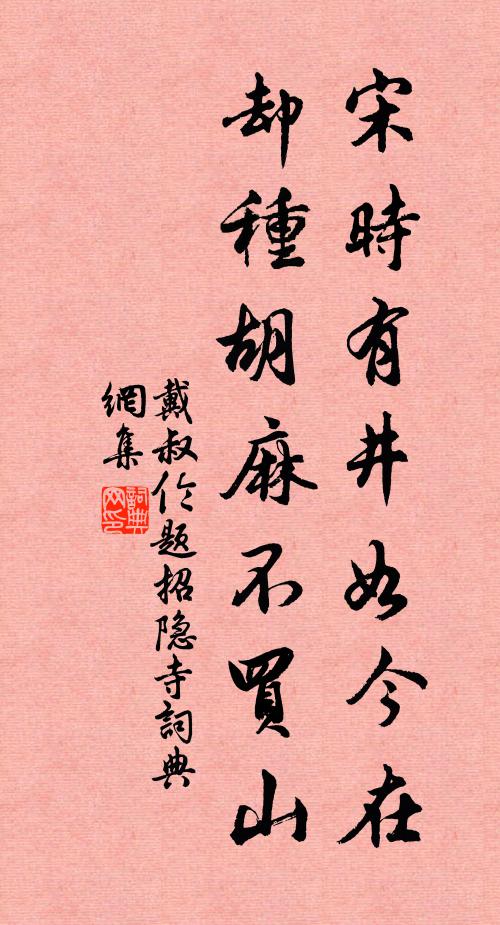 宋時有井如今在
却種胡麻不買山
戴叔伦题招隐寺詞典
網集
詞典
网印